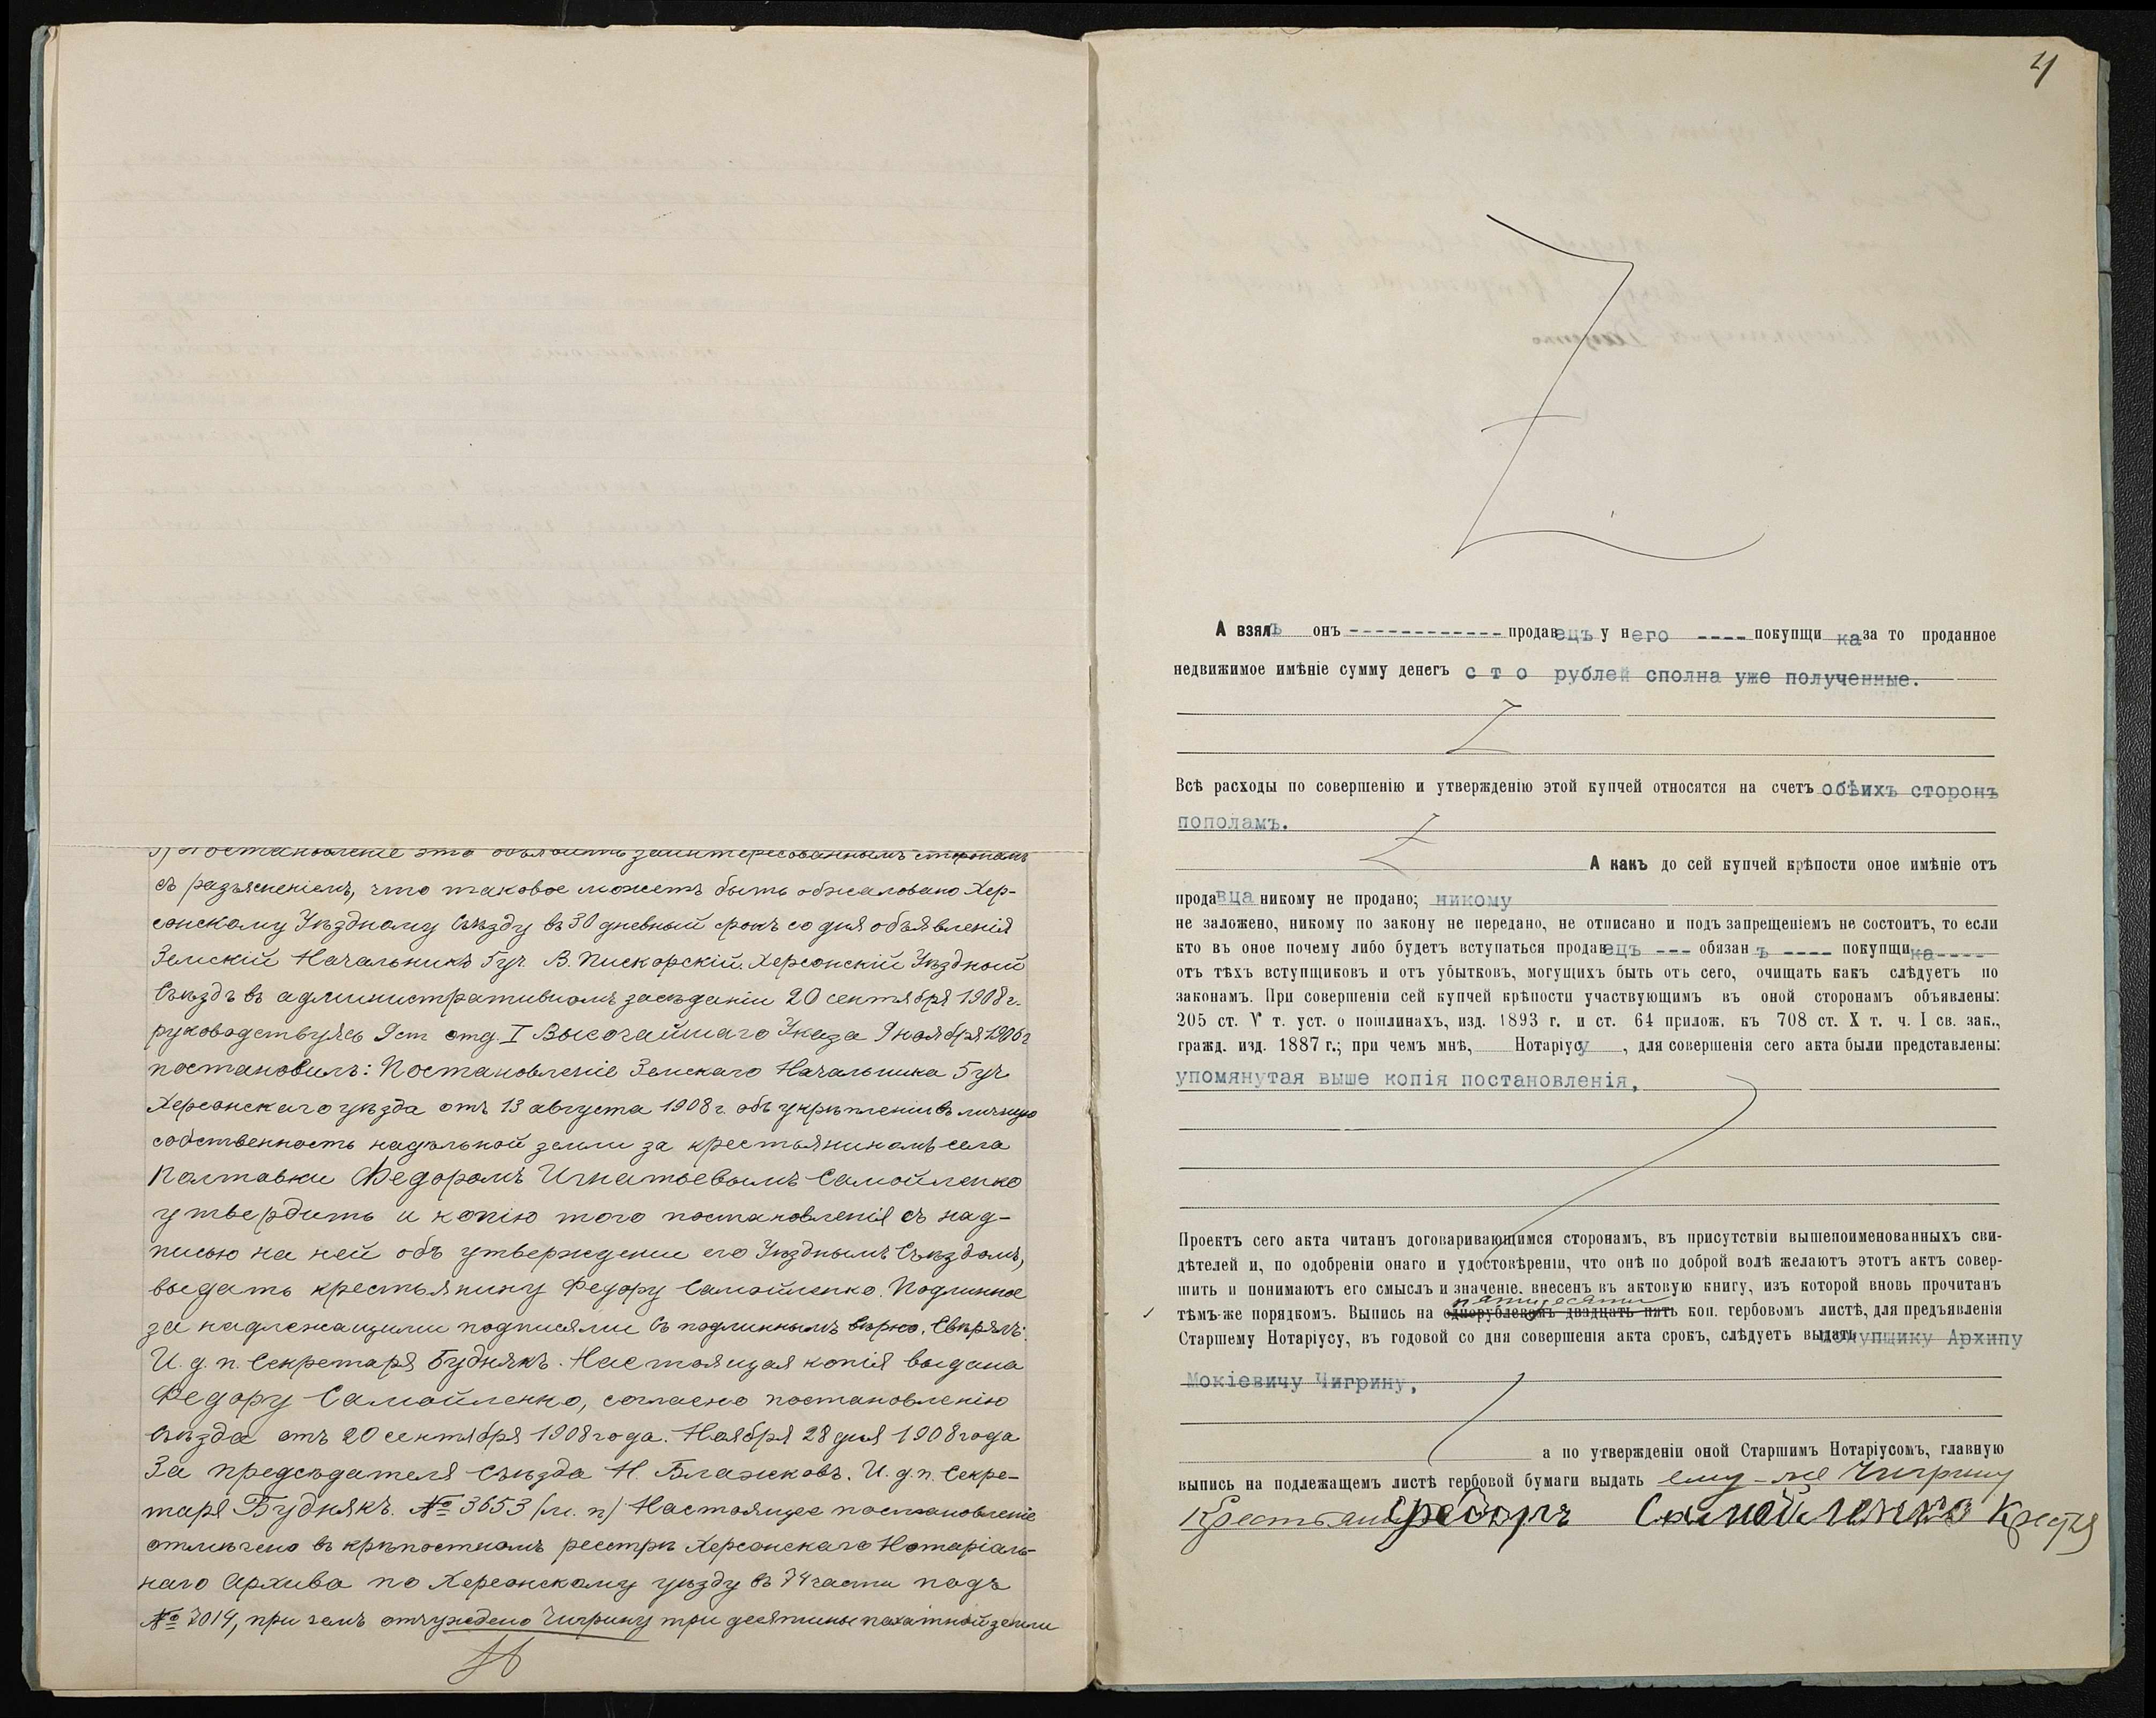 3) Постановленіе это объявить заинтересованнымъ сторонамъ
съ разъясненіемъ, что таковое можетъ быть обжаловано Хер-
сонскому Уѣздному Съѣзду въ 30 дневный срокъ со дня объявленія
Земскій Начальникъ 5 уч. В. Пискорскій. Херсонскій Уѣздный
Съѣздъ въ административномъ засѣданіи 20 сентября 1908 г.
руководствуясь 9 ст отд. I Высочайшаго Указа 9 ноября 1906 г
постановилъ: Постановленіе Земскаго Начальника 5 уч.
Херсонскаго уѣзда отъ 13 августа 1908 г. объ укрѣпленіи въ личную
собственность надѣльной земли за крестьяниномъ села
Полтавки Федоромъ Игнатьевымъ Самойленко
утвердить и копію того постановленія съ над-
писью на ней объ утвержденіи его Уѣзднымъ Съѣздомъ,
выдать крестьянину Федору Самойленко. Подлинное
за надлежащими подписями Съ подлиннымъ вѣрно. Свѣрялъ:
И. д. п. Секретаря Буднякъ. Настоящая копія выдана
Федору Самойленко, согласно постановленію
Съѣзда отъ 20 сентября 1908 года. Ноября 28 дня 1908 года
За предсѣдателя Съѣзда Н. Блажковъ. И. д. п. Секре-
таря Буднякъ. № 3653 (м. п) Настоящее постановленіе
отмѣчено въ крѣпостномъ реестрѣ Херсонскаго Нотаріаль-
наго Архива по Херсонскому уѣзду въ 74 части подъ
№ 7014, при чемъ отчуждено Чигрину три десятины пахатной земли
4
А взялъ онъ ------------ продавецъ у него ---- покупщика за то проданное
недвижимое имѣніе сумму денегъ сто рублей сполна уже полученные.
Всѣ расходы по совершенію и утвержденію этой купчей относятся на счетъ обѣихъ сторонъ
пополамъ.
А какъ до сей купчей крѣпости оное имѣніе отъ
продавца никому не продано; никому
не заложено, никому по закону не передано, не отписано и подъ запрещеніемъ не состоитъ, то если
кто въ оное почему либо будетъ вступаться продавецъ --- обязанъ ---- покупщика----
отъ тѣхъ вступщиковъ и отъ убытковъ, могущихъ быть отъ сего, очищать какъ слѣдуетъ по
законамъ. При совершеніи сей купчей крѣпости участвующимъ въ оной сторонамъ объявлены:
205 ст. V т. уст. о пошлинахъ, изд. 1893 г. и ст. 64 прилож. къ 708 ст. X т. ч. I св. зак.,
гражд. изд. 1887 г.; при чемъ мнѣ, Нотаріусу, для совершенія сего акта были представлены:
упомянутая выше копія постановленія,
Проектъ сего акта читанъ договаривающимся сторонамъ, въ присутствіи вышепоименованныхъ сви-
дѣтелей и, по одобреніи онаго и удостовѣреніи, что онѣ по доброй волѣ желаютъ этотъ актъ совер-
шить и понимаютъ его смыслъ и значеніе, внесенъ въ актовую книгу, изъ которой вновь прочитанъ
пятидесяти
тѣмъ-же порядкомъ. Выпись на однорублевомъ двадцать пять коп. гербовомъ листѣ, для предъявленія
Старшему Нотаріусу, въ годовой со дня совершенія акта срокъ, слѣдуетъ выдать покупщику Архипу
Мокіевичу Чигрину,
а по утвержденіи оной Старшимъ Нотаріусомъ, главную
выпись на подлежащемъ листѣ гербовой бумаги выдать ему-же Чигрину
Крестьянинъ Федоръ Самойленко Крестья